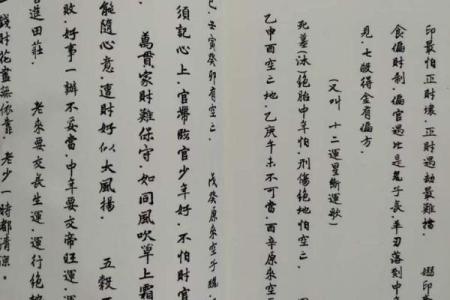 印最怕正財壞．正財遇劫最難擋．
食偏財制．偏官遇比是兄子長．羊刃落刻中
見．七殺得金有偏方．
（又叫．十二運星斷運歌）
死墓（冻）絕胎中年怕．刑傷絕地怕空亡．
乙申酉空亡地．乙庚午未不可當．丙辛原來空
己．壬寅癸卯有空亡． 戊癸原來空子
須記心上．官帶臨官少年好．不怕財官
萬貫家財難保守．如同風吹草上霜
能隨心意．運財好似大風揚． 五殺
敗．好事一辦不妥當．中年要交帝旺運．
進田莊． 老來要交長生運．運行絕
錢財花盡無依靠．老少一時都清涼．